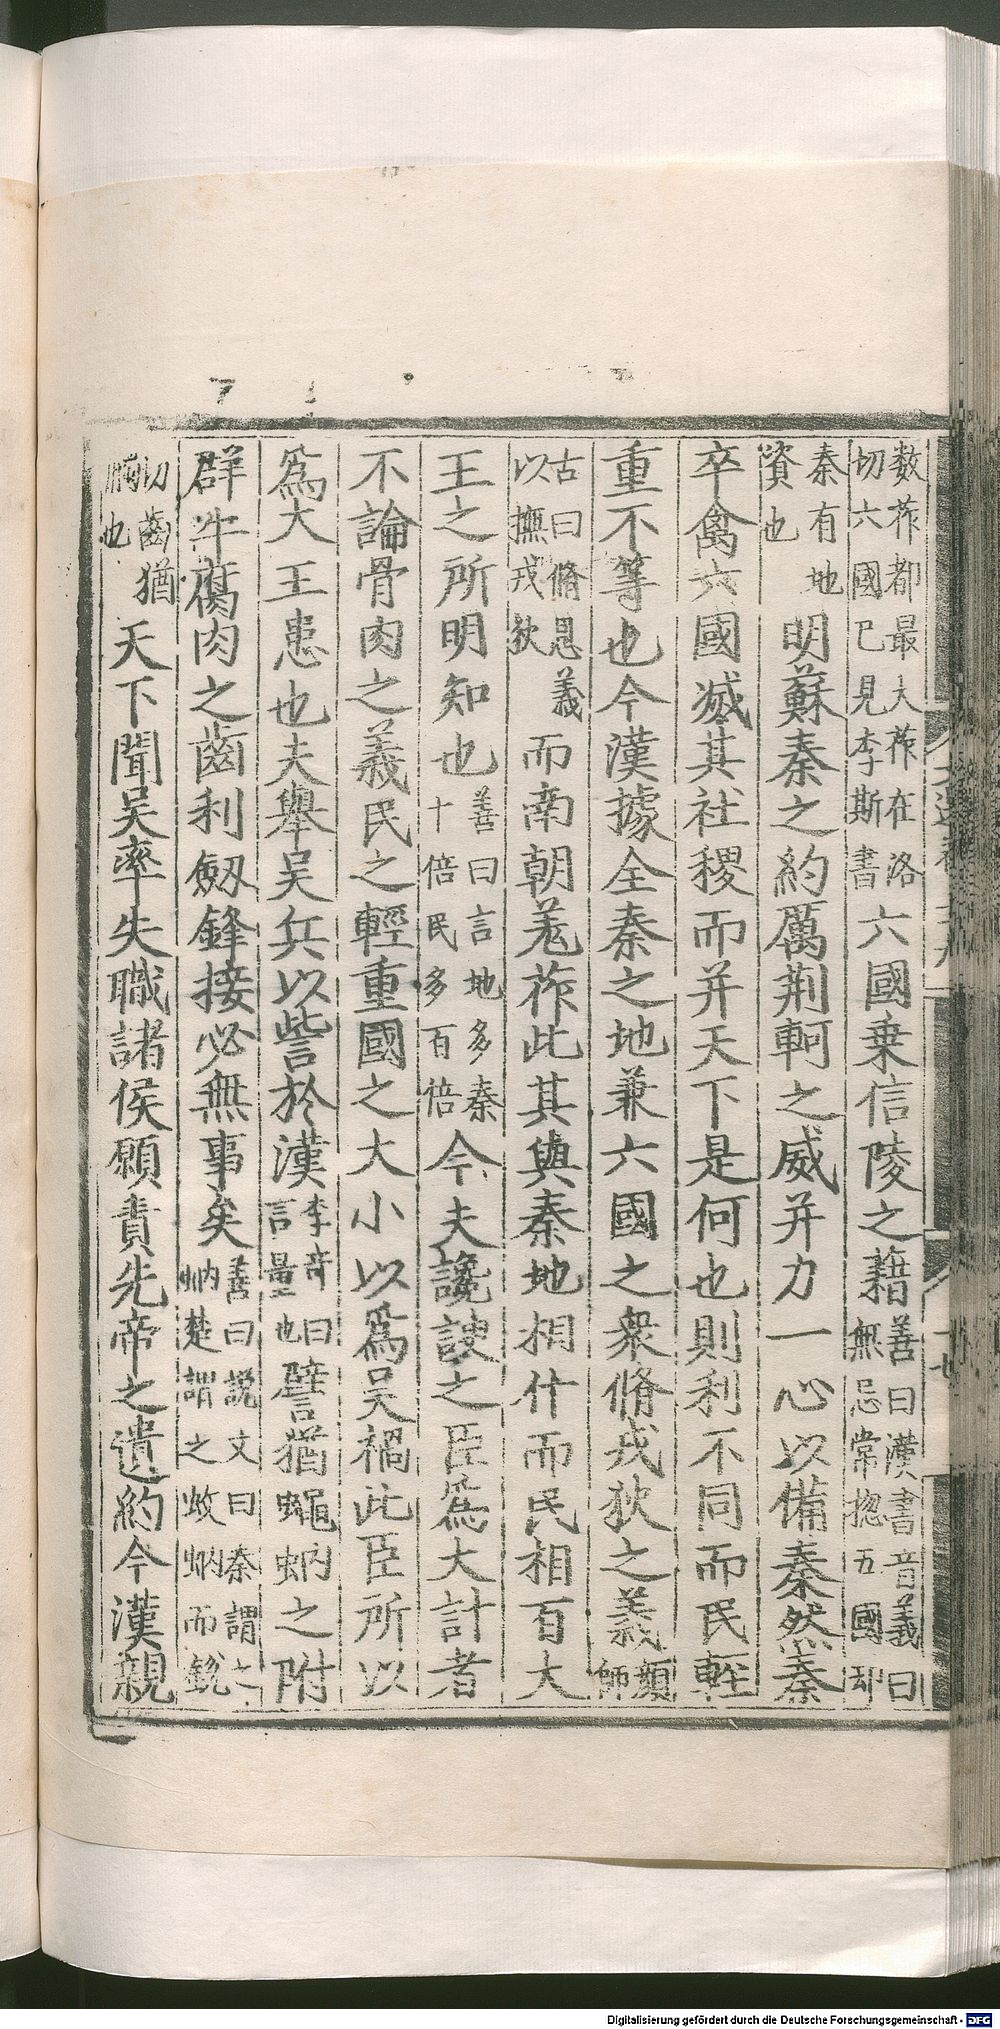 數莋都最大莋在洛切六國已見李斯書六國乗信陵之藉善曰漢書音義曰無忌常揔五國却
秦有地資也明蘇秦之約厲荆軻之威并力一心以備秦然秦
卒禽六國滅其社稷而并天下是何也則利不同而民輕
重不等也今漢據全秦之地兼六國之衆脩戎狄之義顔師
古曰脩恩義以撫戎狄而南朝羗莋此其與秦地相什而民相百大
王之所明知也善曰言地多秦十倍民多百倍今夫讒諛之臣爲大計者
不論骨肉之義民之輕重國之大小以爲吴禍此臣所以
爲大王患也夫舉吴兵以訾於漢李竒曰言量也譬猶蠅蚋之附
群牛腐肉之齒利劔鋒接必無事矣善曰説文曰秦謂之蚋楚謂之蚊蚋而鋭
切齒猶也天下聞吴率失職諸侯願責先帝之遺約今漢親
Digitalisierung gefördert durch die Deutsche Forschungsgemeinschaft - DFG